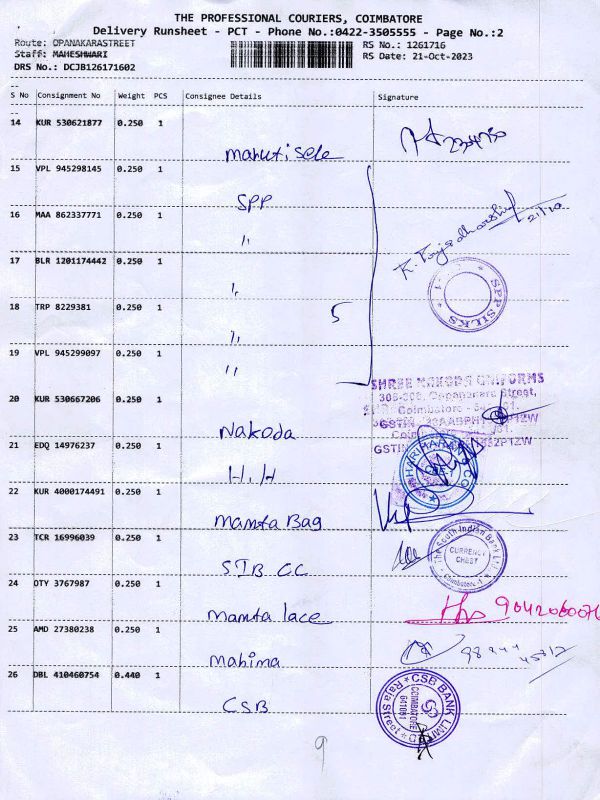 THE PROFESSIONAL COURIERS, COIMBATORE
Delivery Runsheet - PCT - Phone No.:0422-3505555 - Page No.:2
Route: OPANAKARASTREET RS No.: 1261716
Staff: MAHESHWARI RS Date: 21-Oct-2023
DRS No.: DCJB126171602
S No Consignment No Weight PCS Consignee Details Signature
14 KUR 530621877 0.250 1
Maruti sele
15 VPL 945298145 0.250 1
SPP
16 MAA 862337771 0.250 1
"
21/10
17 BLR 1201174442 0.250 1
"
SPP SILKS
18 TRP 8229381 0.250 1
5
"
19 VPL 945299097 0.250 1
"
SHREE NAKODA UNIFORMS
20 KUR 530667206 0.250 1
Nakoda
21 EDQ 14976237 0.250 1
H.H
HARIHARAN & CO
CBE-1
22 KUR 4000174491 0.250 1
Mamta Bag
23 TCR 16996039 0.250 1
SIB CC
The South Indian Bank Ltd.
CURRENCY CHEST
Coimbatore -1
24 OTY 3767987 0.250 1
Mamta lace
25 AMD 27380238 0.250 1
Mahima
26 DBL 410460754 0.440 1
CSB
CSB BANK LIMITED
COIMBATORE
641001
Raja Street
9